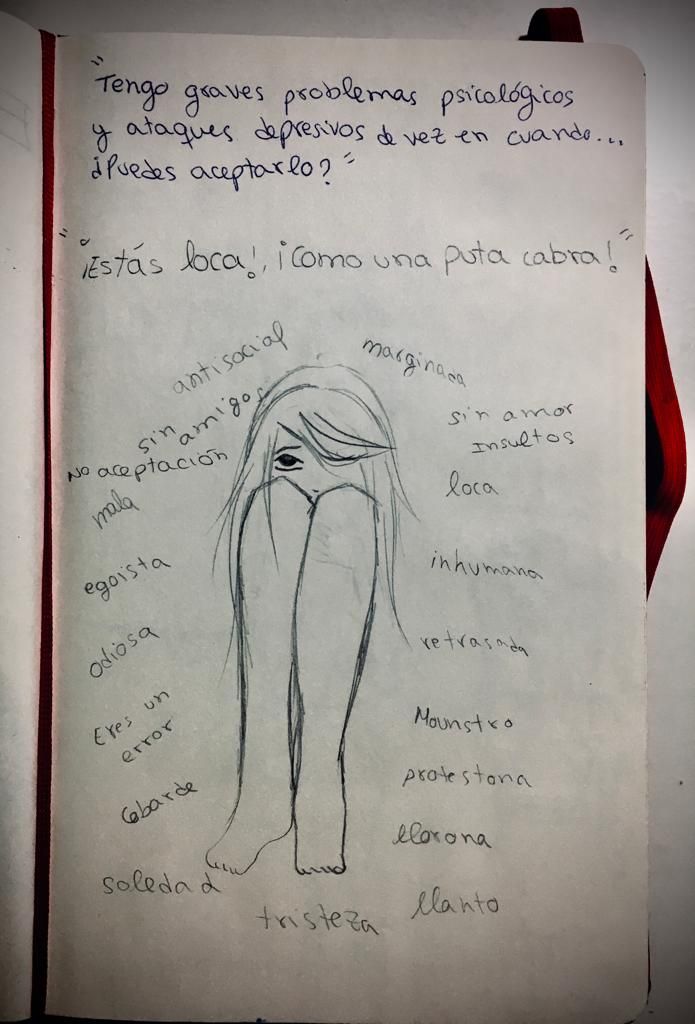 "Tengo graves problemas psicológicos
y ataques depresivos de vez en cuando...
¿Puedes aceptarlo?"
"¡Estás loca!, ¡Como una puta cabra!"
antisocial
marginada
sin amigos
sin amor
Insultos
No aceptación
loca
mala
egoista
inhumana
odiosa
retrasada
Eres un
error
Mounstro
protestona
Cobarde
llorona
soledad
llanto
tristeza